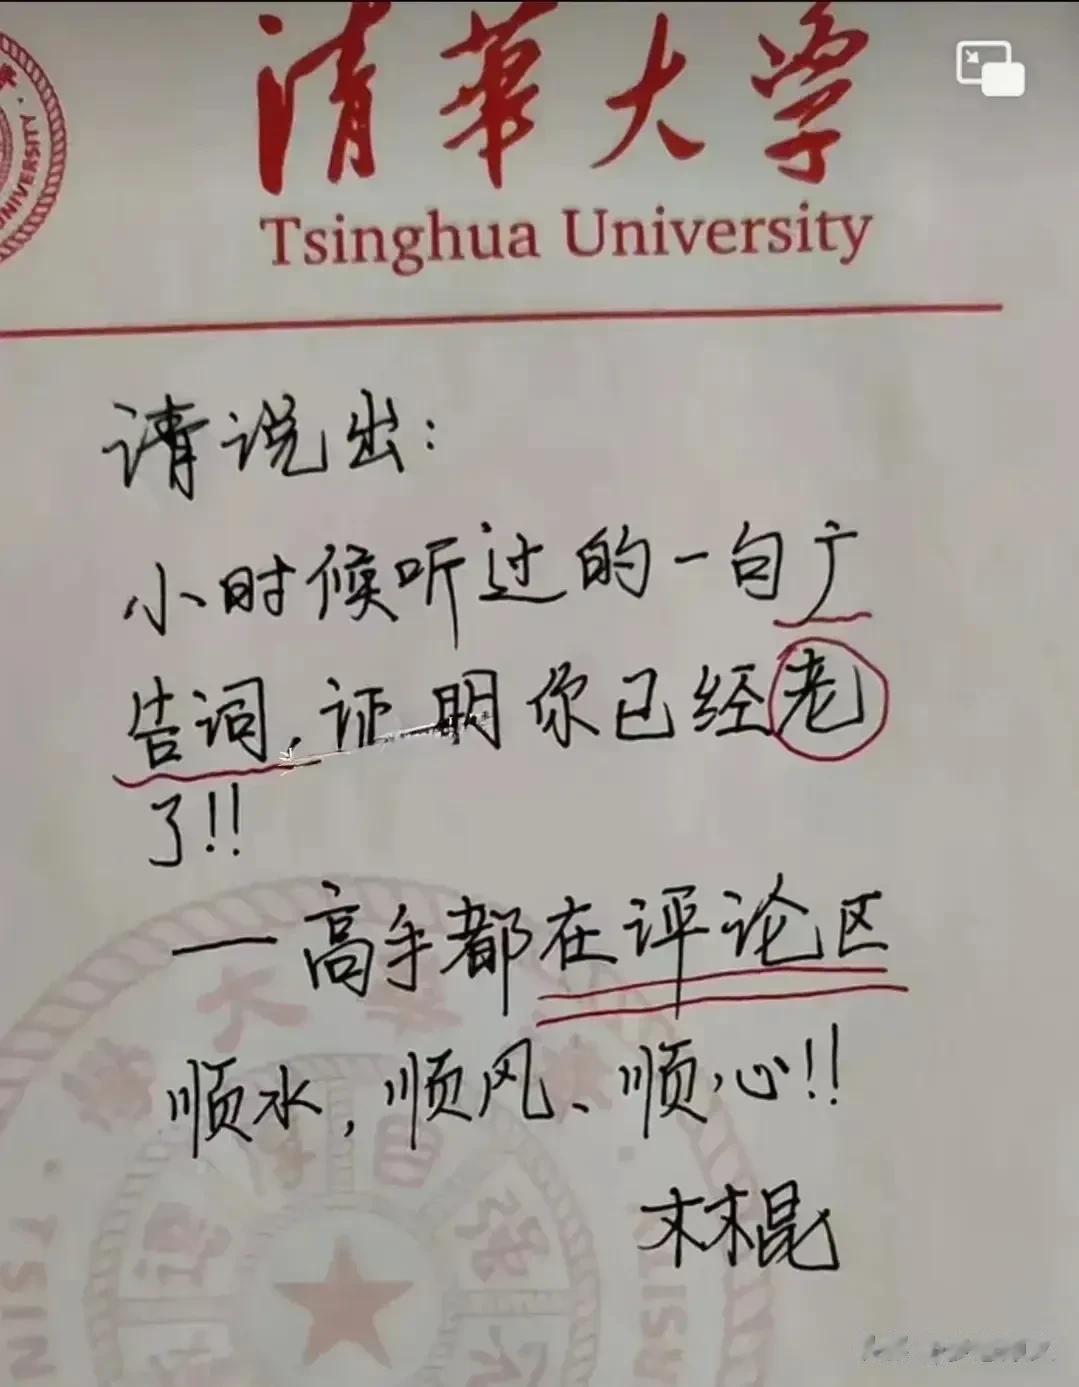 清華大学
Tsinghua University
UNIVERSITY
请说出:
小时候听过的一句广
告词,证明你已经老
了!!
—高手都在评论区
顺水,顺风、顺心!!
林棍